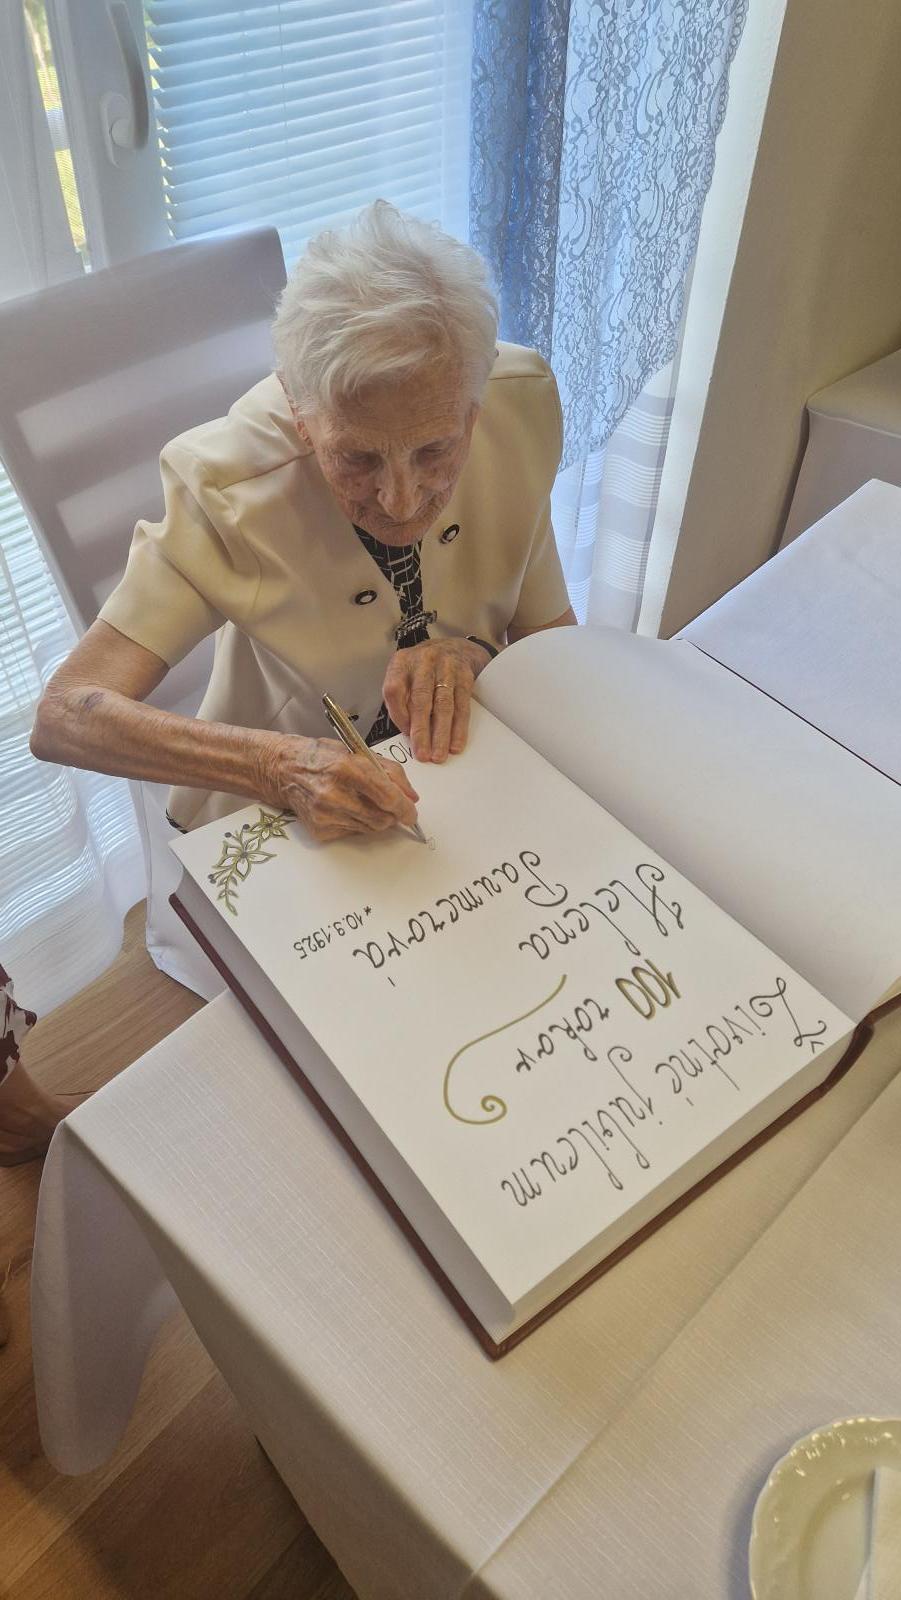 Životné jubileum
100 rokov
Helena
Paumerová
*10.9.1925
10.